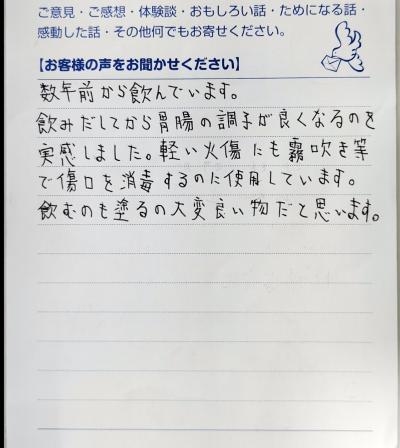 ご意見・ご感想・体験談・おもしろい話・ためになる話・
感動した話・その他何でもお寄せください。
【お客様の声をお聞かせください】
数年前から飲んでいます。
飲みだしてから胃腸の調子が良くなるのを
実感しました。軽い火傷にも霧吹き等
で傷口を消毒するのに使用しています。
飲むのも塗るの大変良い物だと思います。